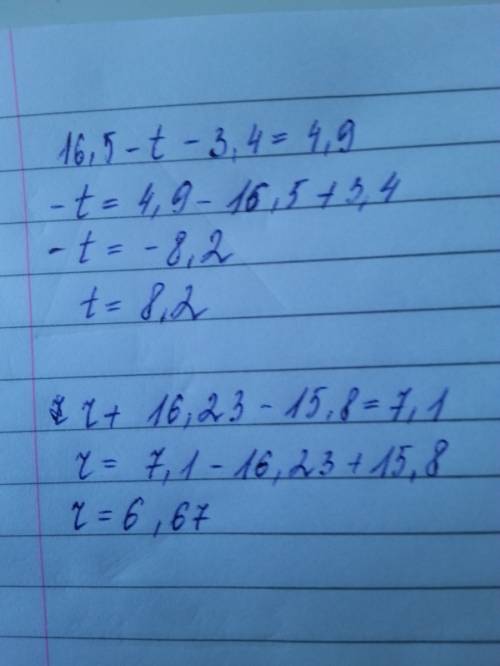 16,5 - t - 3,4 = 4,9
- t = 4,9 - 16,5 + 3,4
- t = - 8,2
t = 8,2
r + 16,23 - 15,8 = 7,1
r = 7,1 - 16,23 + 15,8
r = 6,67